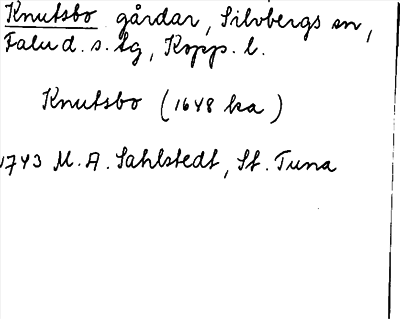 Knutsbo gårdar, Silvbergs sn,
Falu d. s. tg, Kopp. l.
Knutsbo (1648 ka)
1743 M. A. Sahlstedt, St. Tuna